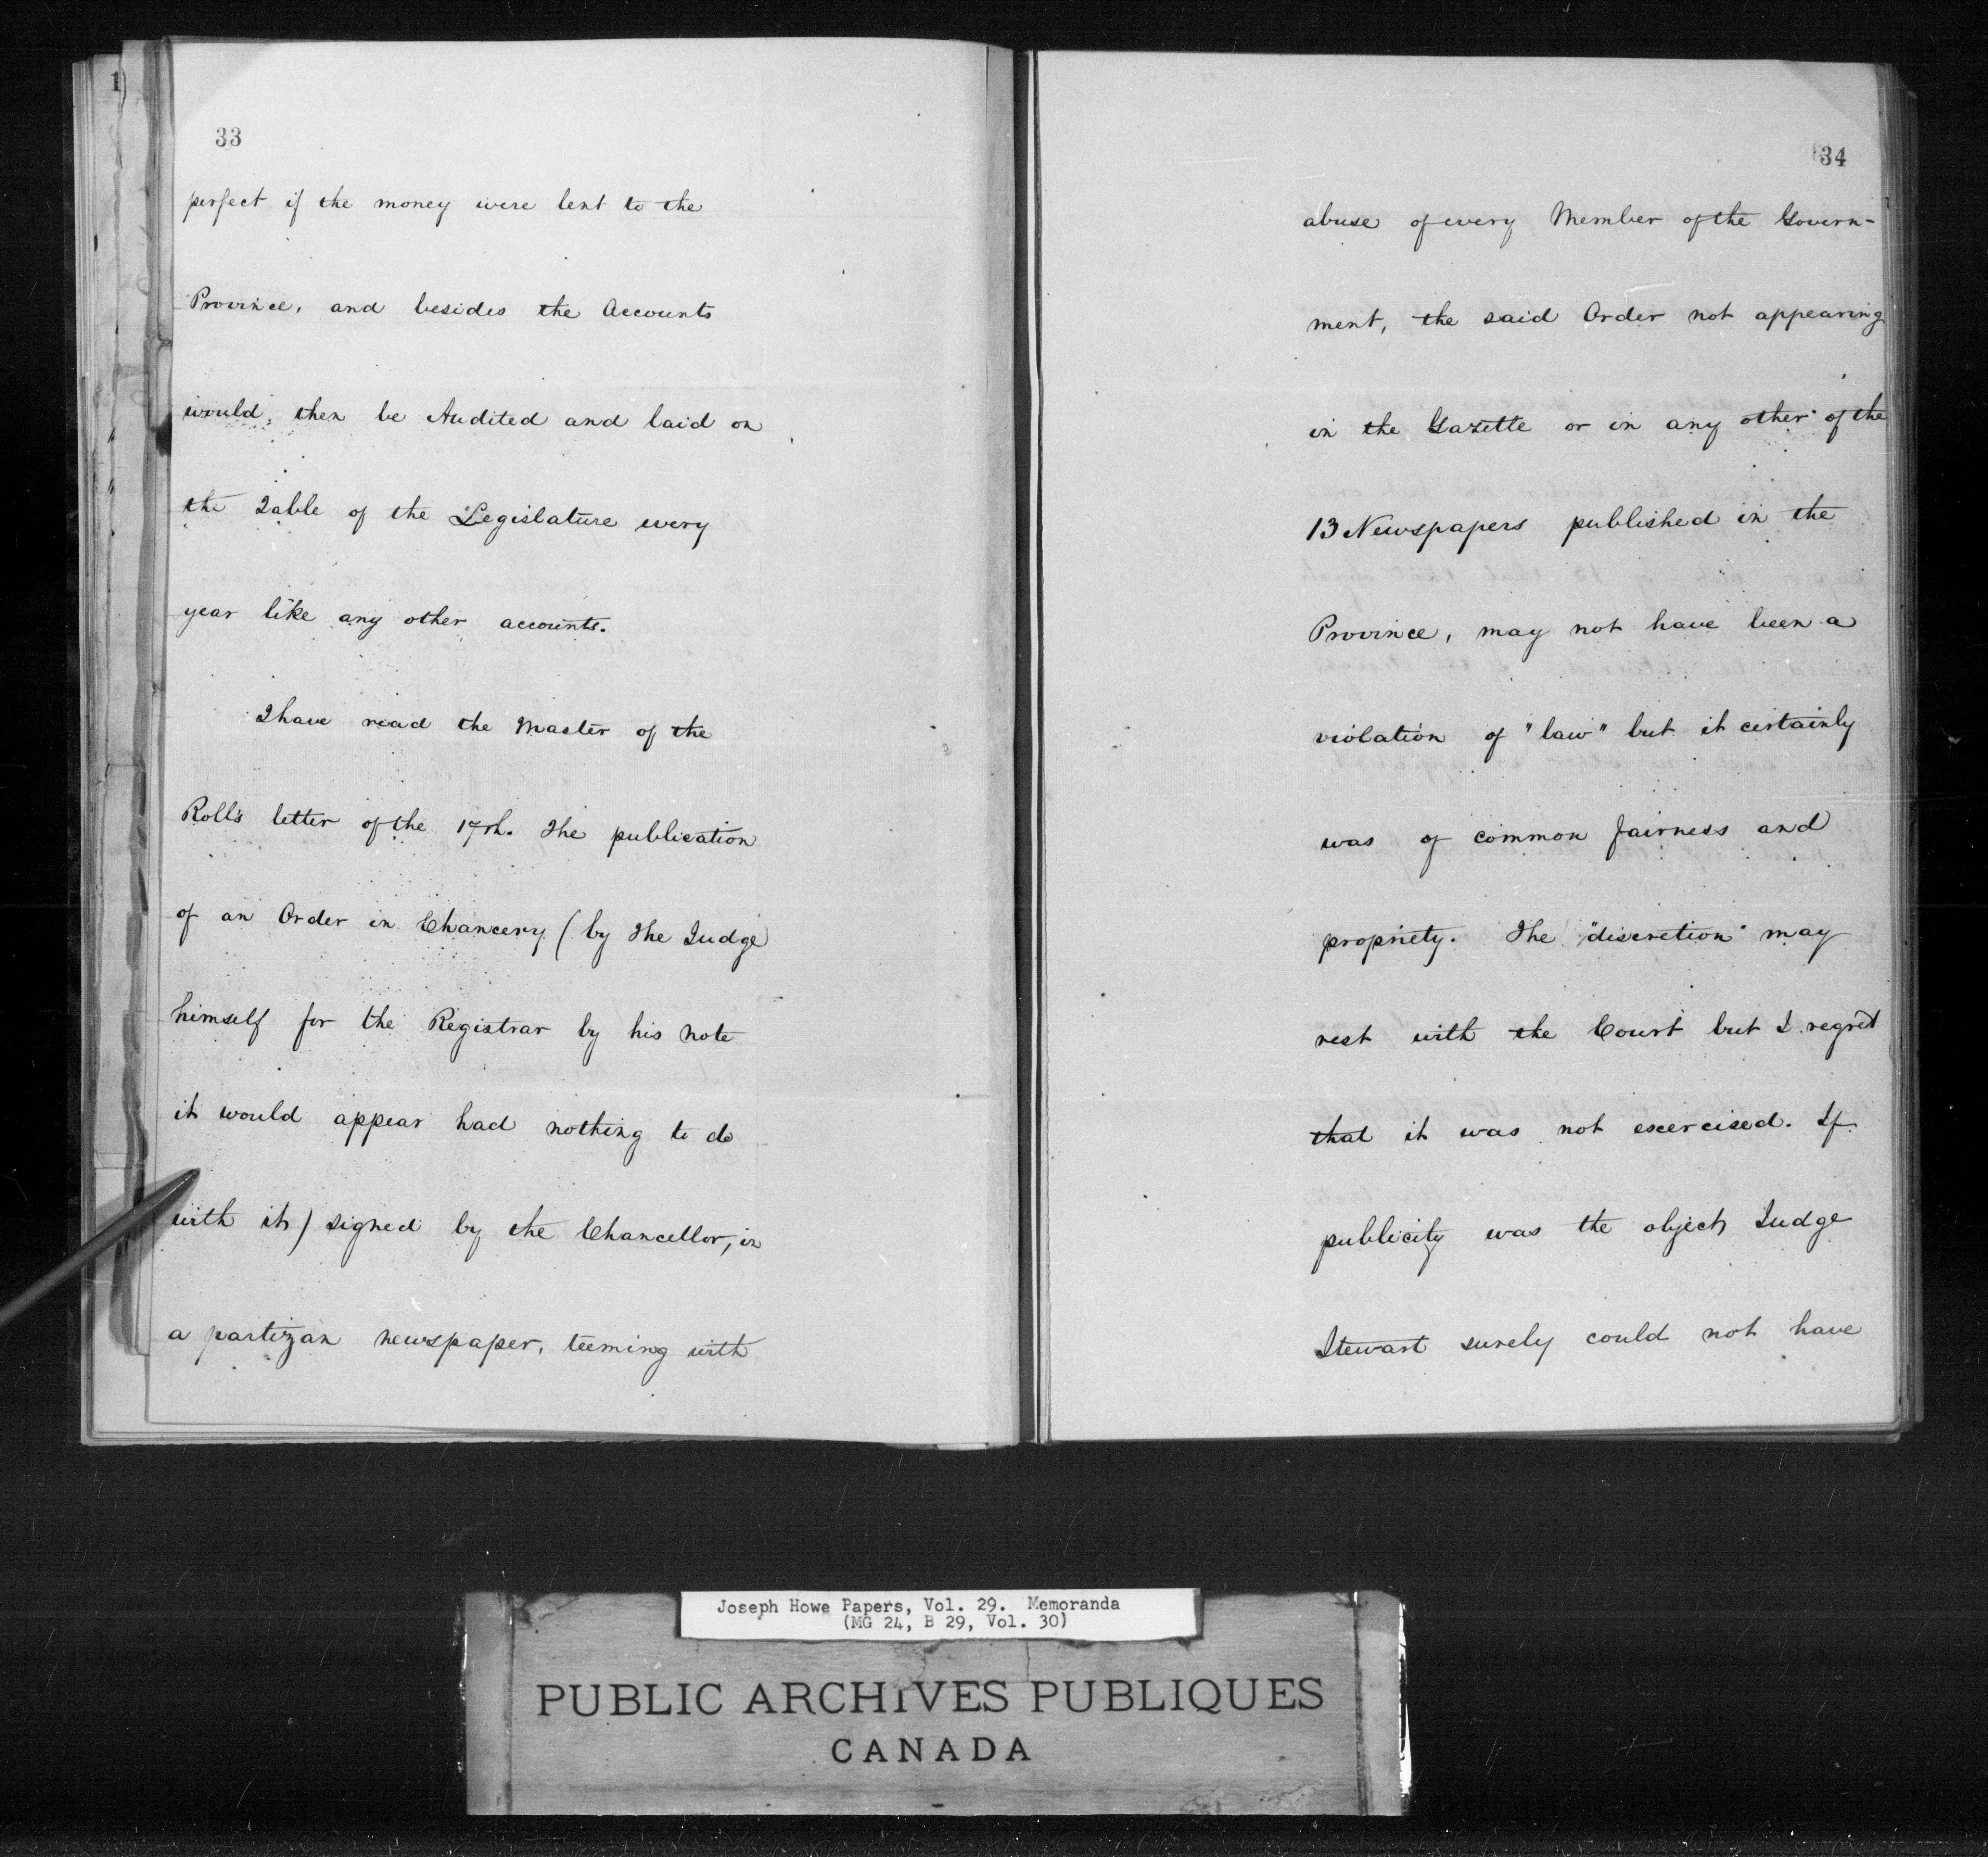 33
perfect if the money were lent to the
Province, and besides the Accounts
would, then be Audited and laid on
the Table of the Legislature every
year like any other accounts.
I have read the Master of the
Roll's letter of the 17th. The publication
of an Order in Chancery (by the Judge
himself for the Registrar by his note
it would appear had nothing to do
with it) signed by the Chancellor, in
a partizan newspaper, teeming with
34
abuse of every Member of the Govern-
ment, the said Order not appearing
in the Gazette or in any other of the
13 Newspapers published in the
Province, may not have been a
violation of "law" but it certainly
was of common fairness and
propriety. The "discretion" may
rest with the Court but I regret
that it was not exercised. If
publicity was the object Judge
Stewart surely could not have
Joseph Howe Papers, Vol. 29. Memoranda
(MG 24, B 29, Vol. 30)
PUBLIC ARCHIVES PUBLIQUES
CANADA